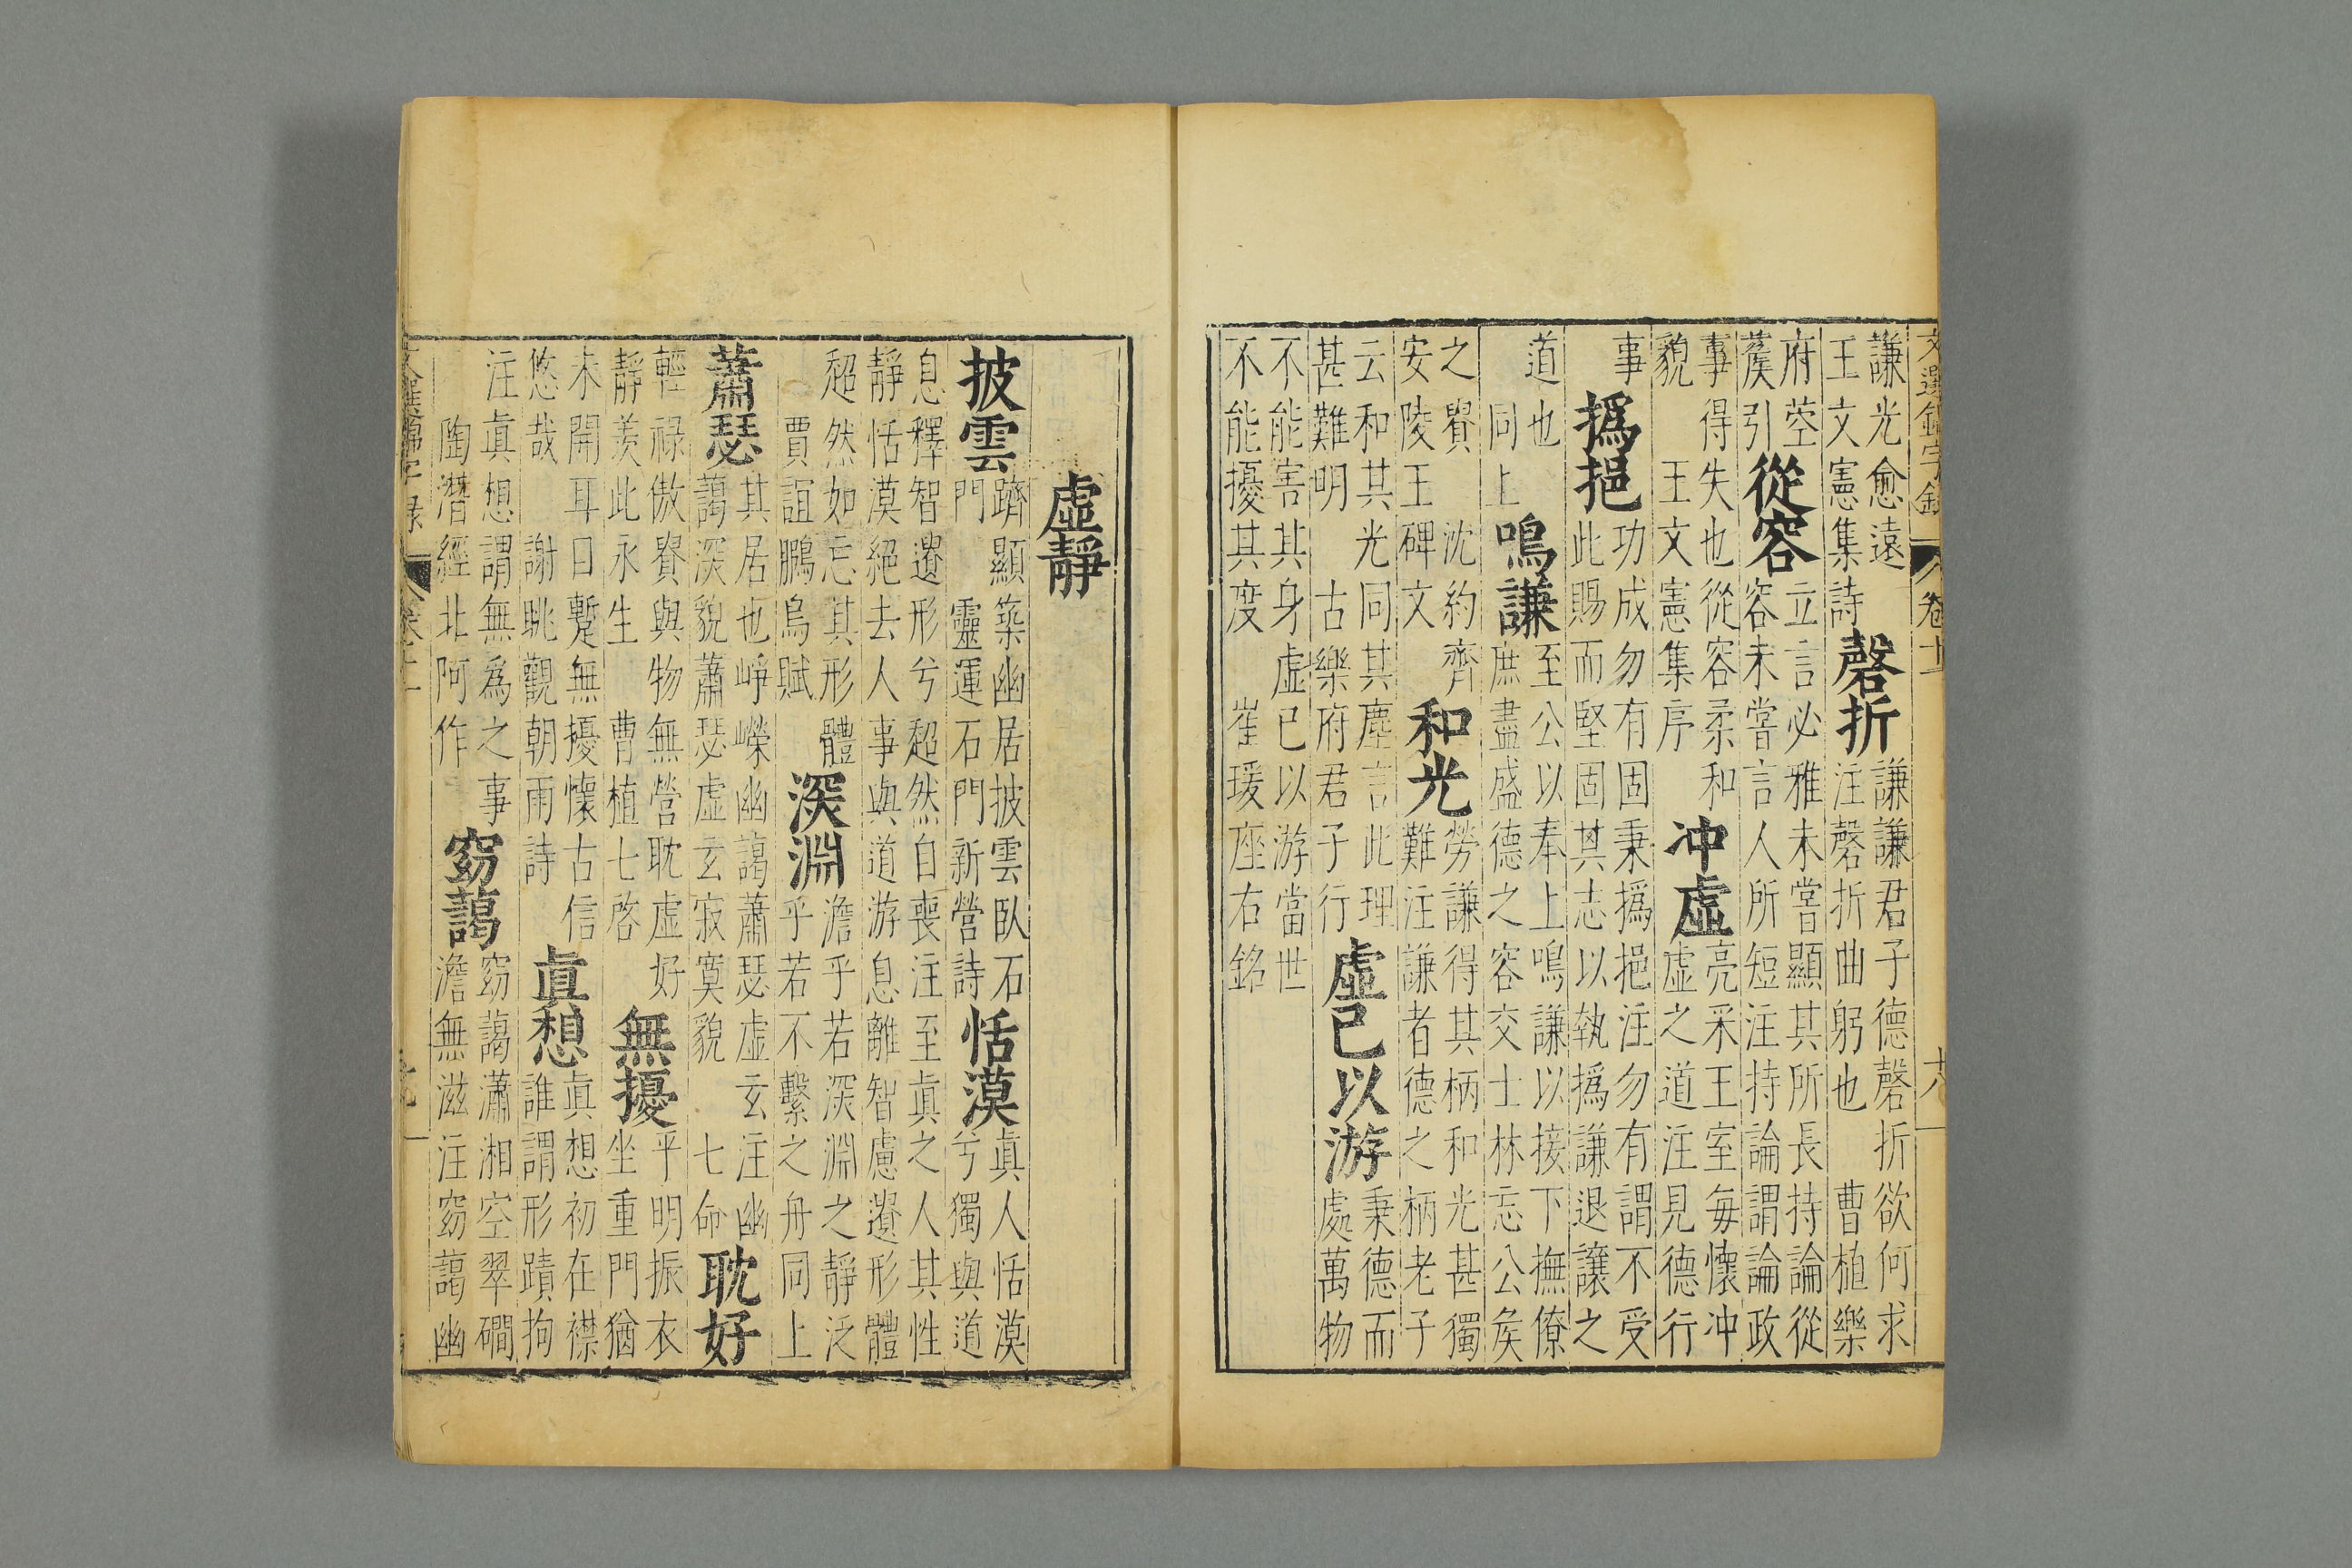 文選錦字錄 卷十一 十八
謙光愈遠
王文憲集詩
磬折
謙謙君子德磬折欲何求
注磬折曲躬也 曹植樂
府箜
篌引
從容
立言必雅未嘗顯其所長持論從
容未嘗言人所短注持論謂論政
事得失也從容柔和
貌 王文憲集序
冲虛
亮采王室每懷冲
虛之道注見德行
事
撝挹
功成勿有固秉撝挹注勿有謂不受
此賜而堅固其志以執撝謙退讓之
道也
同上
鳴謙
至公以奉上鳴謙以接下撫僚
庶盡盛德之容交士林忘公侯
之貴 沈約齊
安陵王碑文
和光
勞謙得其柄和光甚獨
難注謙者德之柄老子
云和其光同其塵言此理
甚難明 古樂府君子行
虛已以游
秉德而
處萬物
不能害其身虛已以游當世
不能擾其度 崔瑗座右銘
虛靜
披雲
躋顯築幽居披雲臥石
門 靈運石門新營詩
恬漠
眞人恬漠
兮獨與道
息釋智遺形兮超然自喪注至眞之人其性
靜恬漠絕去人事與道游息離智慮遺形體
超然如忘其形體
賈誼鵩鳥賦
深淵
澹乎若深淵之靜泛
乎若不繫之舟同上
蕭瑟
其居也崢嶸幽藹蕭瑟虛玄注幽
藹深貌蕭瑟虛玄寂寞貌 七命
耽好
輕祿傲貴與物無營耽虛好
靜羨此永生 曹植七啓
無擾
平明振衣
坐重門猶
未開耳目蹔無擾懷古信
悠哉 謝眺觀朝雨詩
眞想
眞想初在襟
誰謂形蹟拘
注眞想謂無爲之事
陶潛經北阿作
窈藹
窈藹瀟湘空翠磵
澹無滋注窈藹幽
文選錦字錄 卷十一